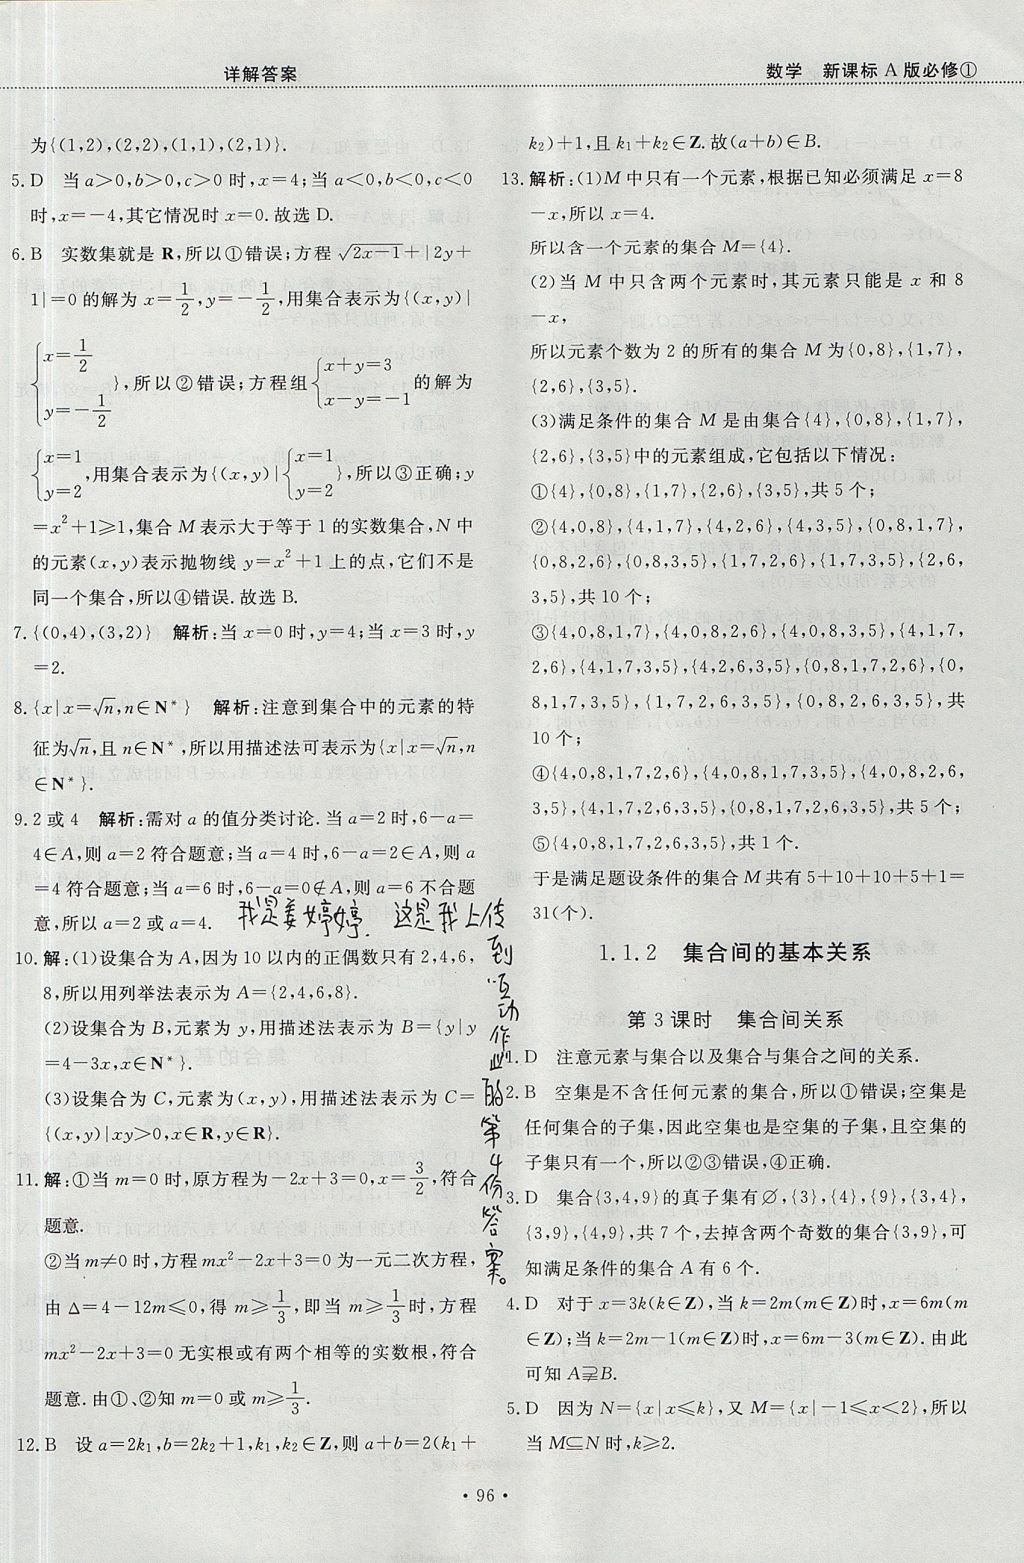 详解答案
数学 新课标A版必修①
为{(1,2),(2,2),(1,1),(2,1)}.
5.D 当a>0,b>0,c>0时,x=4;当a<0,b<0,c<0
时,x=-4,其它情况时x=0.故选D.
6.B 实数集就是R,所以①错误;方程√(2x-1)+|2y+
1|=0的解为x=1/2,y=-1/2,用集合表示为{(x,y)|
{x=1/2 y=-1/2},所以②错误;方程组{x+y=3 x-y=-1的解为
{x=1 y=2,用集合表示为{(x,y)|{x=1 y=2},所以③正确;y
=x²+1≥1,集合M表示大于等于1的实数集合,N中
的元素(x,y)表示抛物线y=x²+1上的点,它们不是
同一个集合,所以④错误.故选B.
7.{(0,4),(3,2)} 解析:当x=0时,y=4;当x=3时,y
=2.
8.{x|x=√n,n∈N*} 解析:注意到集合中的元素的特
征为√n,且n∈N*,所以用描述法可表示为{x|x=√n,n
∈N*}.
9.2或4 解析:需对a的值分类讨论.当a=2时,6-a=
4∈A,则a=2符合题意;当a=4时,6-a=2∈A,则a
=4符合题意;当a=6时,6-a=0∉A,则a=6不合题
意,所以a=2或a=4.
我是姜婷婷. 这是我上传到"互动作业"的第4份答案。
10.解:(1)设集合为A,因为10以内的正偶数只有2,4,6,
8,所以用列举法表示为A={2,4,6,8}.
(2)设集合为B,元素为y,用描述法表示为B={y|y
=4-3x,x∈N*}.
(3)设集合为C,元素为(x,y),用描述法表示为C=
{(x,y)|xy>0,x∈R,y∈R}.
11.解:①当m=0时,原方程为-2x+3=0,x=3/2,符合
题意.
②当m≠0时,方程mx²-2x+3=0为一元二次方程,
由Δ=4-12m≤0,得m≥1/3,即当m≥1/3时,方程
mx²-2x+3=0无实根或有两个相等的实数根,符合
题意.由①、②知m=0或m≥1/3.
12.B 设a=2k₁,b=2k₂+1,k₁,k₂∈Z,则a+b=2(k₁+
k₂)+1,且k₁+k₂∈Z.故(a+b)∈B.
13.解析:(1)M中只有一个元素,根据已知必须满足x=8
-x,所以x=4.
所以含一个元素的集合M={4}.
(2)当M中只含两个元素时,其元素只能是x和8
-x,
所以元素个数为2的所有的集合M为{0,8},{1,7},
{2,6},{3,5}.
(3)满足条件的集合M是由集合{4},{0,8},{1,7},
{2,6},{3,5}中的元素组成,它包括以下情况:
①{4},{0,8},{1,7},{2,6},{3,5},共5个;
②{4,0,8},{4,1,7},{4,2,6},{4,3,5},{0,8,1,7},
{0,8,2,6},{0,8,3,5},{1,7,2,6},{1,7,3,5},{2,6,
3,5},共10个;
③{4,0,8,1,7},{4,0,8,2,6},{4,0,8,3,5},{4,1,7,
2,6},{4,1,7,3,5},{4,2,6,3,5},{0,8,1,7,2,6},{0,
8,1,7,3,5},{1,7,2,6,3,5},{0,8,2,6,3,5},共
10个;
④{4,0,8,1,7,2,6},{4,0,8,1,7,3,5},{4,0,8,2,6,
3,5},{4,1,7,2,6,3,5},{0,8,1,7,2,6,3,5},共5个;
⑤{4,0,8,1,7,2,6,3,5},共1个.
于是满足题设条件的集合M共有5+10+10+5+1=
31(个).
1.1.2 集合间的基本关系
第3课时 集合间关系
1.D 注意元素与集合以及集合与集合之间的关系.
2.B 空集是不含任何元素的集合,所以①错误;空集是
任何集合的子集,因此空集也是空集的子集,且空集的
子集只有一个,所以②③错误,④正确.
3.D 集合{3,4,9}的真子集有∅,{3},{4},{9},{3,4},
{3,9},{4,9},共7个,去掉含两个奇数的集合{3,9},可
知满足条件的集合A有6个.
4.D 对于x=3k(k∈Z),当k=2m(m∈Z)时,x=6m(m
∈Z);当k=2m-1(m∈Z)时,x=6m-3(m∈Z).由此
可知A⫌B.
5.D 因为N={x|x≤k},又M={x|-1≤x<2},所以
当M⊆N时,k≥2.
·96·